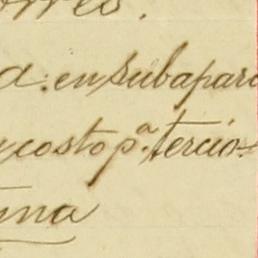 orres.
d. en subapara
y costo pª. tercio-
ma